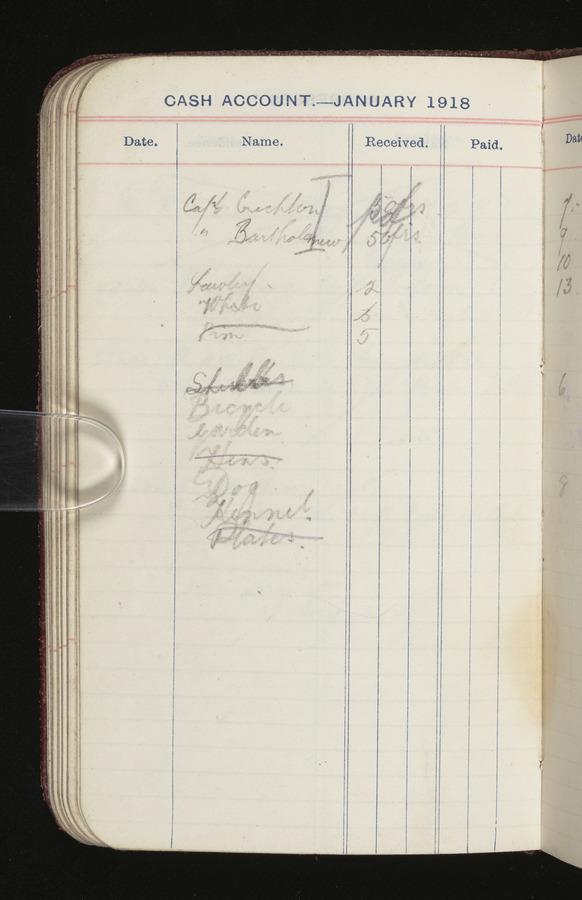 CASH ACCOUNT.—JANUARY 1918
Date. Name. Received. Paid.
Capt Crichton 50frs
" Bartholomew 50frs.
2
White 6
Pim 5
Stubbs
Bicycle
Garden
Hens.
Dog
Kennel.
Plates.
Dat
7.
9
10
13.
6
8